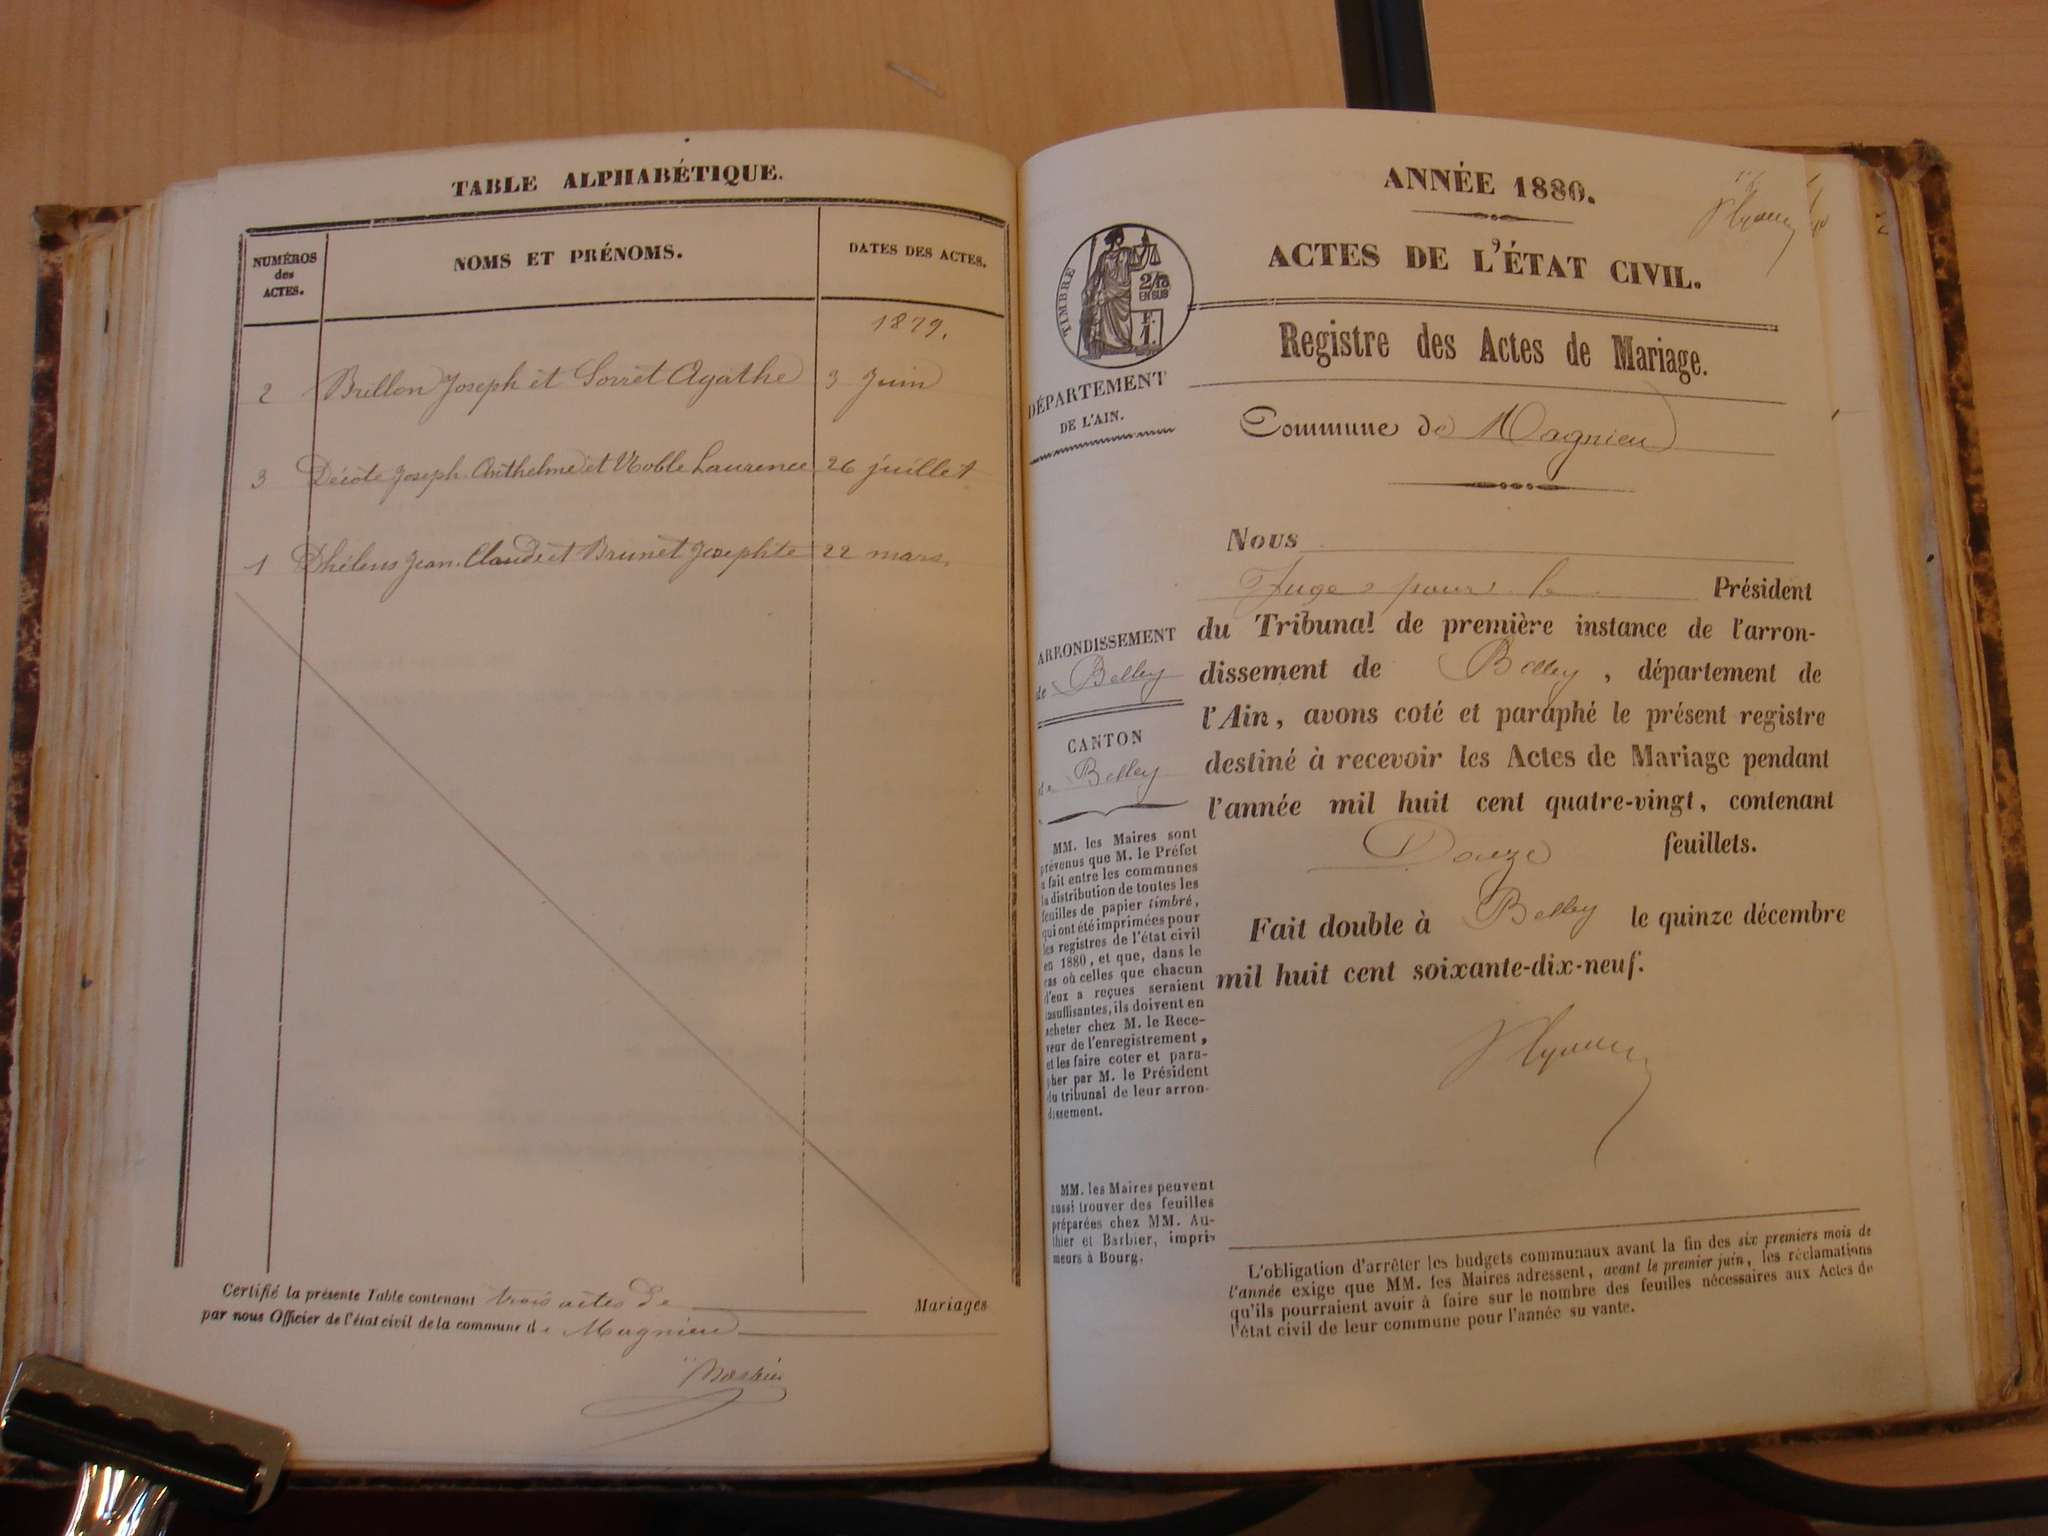 TABLE ALPHABÉTIQUE.
NUMÉROS
des
ACTES.
NOMS ET PRÉNOMS.
DATES DES ACTES.
1879.
2 Brillon Joseph et Sorret Agathe 3 Juin
3 Décote Joseph Anthelme et Noble Laurence 26 juillet
1 Dhélens Jean Claude et Brunet Josephte 22 mars.
Certifié la présente Table contenant trois actes de Mariages
par nous Officier de l'état civil de la commune de Magnieu
ANNÉE 1880.
ACTES DE L'ÉTAT CIVIL.
TIMBRE
2/10
EN SUS
F.
1.
Registre des Actes de Mariage.
DÉPARTEMENT
DE L'AIN.
Commune de Magnieu
Nous
Juge pour le Président
du Tribunal de première instance de l'arron-
dissement de Belley, département de
l'Ain, avons coté et paraphé le présent registre
destiné à recevoir les Actes de Mariage pendant
l'année mil huit cent quatre-vingt, contenant
Douze feuillets.
Fait double à Belley le quinze décembre
mil huit cent soixante-dix-neuf.
ARRONDISSEMENT
de Belley
CANTON
de Belley
MM. les Maires sont
prévenus que M. le Préfet
a fait entre les communes
la distribution de toutes les
feuilles de papier timbré,
qui ont été imprimées pour
les registres de l'état civil
en 1880, et que, dans le
cas où celles que chacun
d'eux a reçues seraient
insuffisantes, ils doivent en
acheter chez M. le Rece-
veur de l'enregistrement,
et les faire coter et para-
pher par M. le Président
du tribunal de leur arron-
dissement.
MM. les Maires peuvent
aussi trouver des feuilles
préparées chez MM. Au-
thier et Barbier, impri-
meurs à Bourg.
L'obligation d'arrêter les budgets communaux avant la fin des six premiers mois de
l'année exige que MM. les Maires adressent, avant le premier juin, les réclamations
qu'ils pourraient avoir à faire sur le nombre des feuilles nécessaires aux Actes de
l'état civil de leur commune pour l'année su vante.